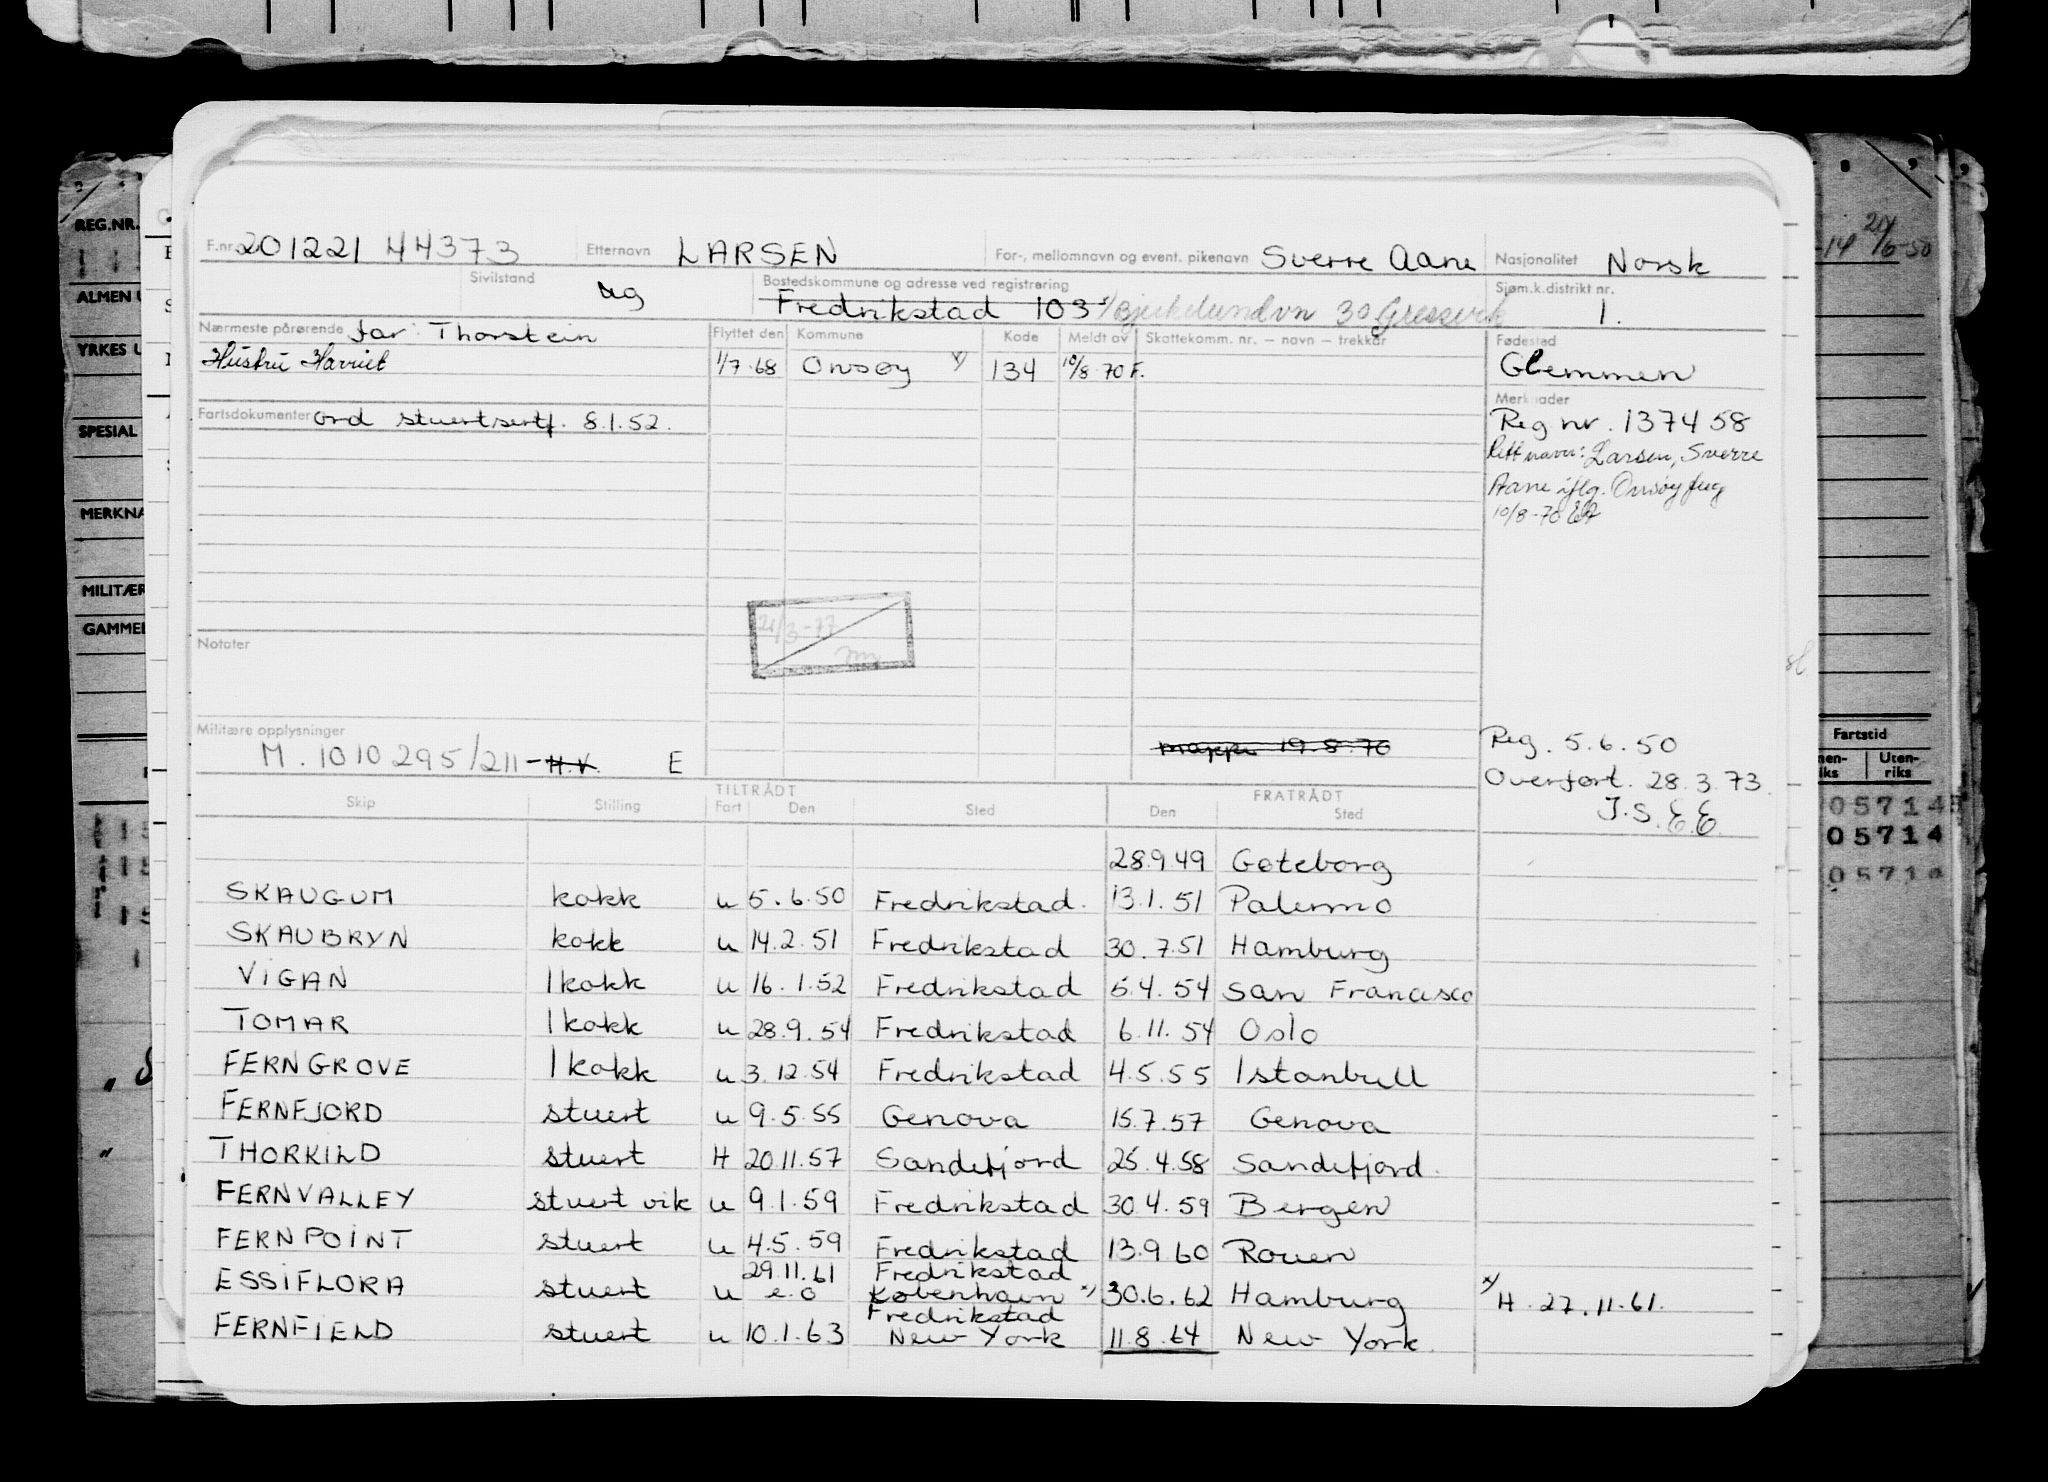 F.nr. 201221 44373 Etternavn LARSEN For-, mellomnavn og event. pikenavn Sverre Aane Nasjonalitet Norsk
Sivilstand ug Bostedskommune og adresse ved registrering Fredrikstad 103 Bjerkelundvn 30 Gressvik Sjøm.k.distrikt nr. 1.
Nærmeste pårørende far: Thorstein Flyttet den Kommune Kode Meldt av Skattekomm. nr. – navn – trekkår Fødested
Hustru Harriet 1/7-68 Onsøy x/ 134 10/8-70 F. Glemmen
Fartsdokumenter ord stuertsertf. 8.1.52. Merknader
Reg nr. 137458
Rett navn: Larsen, Sverre
Aane iflg. Onsøy
10/8-70
21/3-77
Notater
Militære opplysninger
M. 1010295/211 - H.V. E
mappe 19.8.70
Reg. 5.6.50
Overført. 28.3.73.
J.S. E.E.
Skip Stilling TILTRÅDT Fart Den Sted FRATRÅDT Den Sted
28.9.49 Gøteborg
SKAUGUM kokk u 5.6.50 Fredrikstad. 13.1.51 Palermo
SKAUBRYN kokk u 14.2.51 Fredrikstad 30.7.51 Hamburg
VIGAN 1kokk u 16.1.52 Fredrikstad 5.4.54 San Francisco
TOMAR 1kokk u 28.9.54 Fredrikstad 6.11.54 Oslo
FERNGROVE 1kokk u 3.12.54 Fredrikstad 4.5.55 Istanbull
FERNFJORD stuert u 9.5.55 Genova 15.7.57 Genova
THORKILD stuert H 20.11.57 Sandefjord 25.4.58 Sandefjord.
FERNVALLEY stuert vik u 9.1.59 Fredrikstad 30.4.59 Bergen
FERNPOINT stuert u 4.5.59 Fredrikstad 13.9.60 Rouen
29.11.61 Fredrikstad
ESSIFLORA stuert u e.o København x/ 30.6.62 Hamburg x/ H. 27.11.61.
Fredrikstad
FERNFIELD stuert u 10.1.63 New York 11.8.64 New York.
REG.NR.
YRKES
SPESIAL
MERKNA
MILITÆR
GAMMEL
8 9 9
Fartstid
Uten-
riks
05714
05714